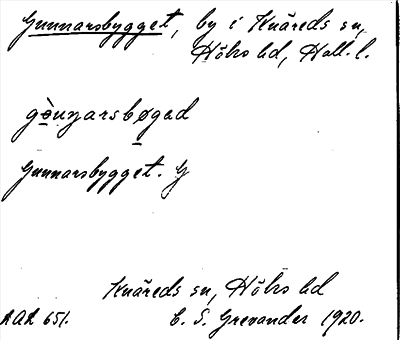 Gunnarsbygget, by i Knäreds sn,
Höks hd, Hall. l.
gòuņarsbøgəd
Gunnarsbygget. G
Knäreds sn, Höks hd
AAL 651. E. S. Grevander 1920.